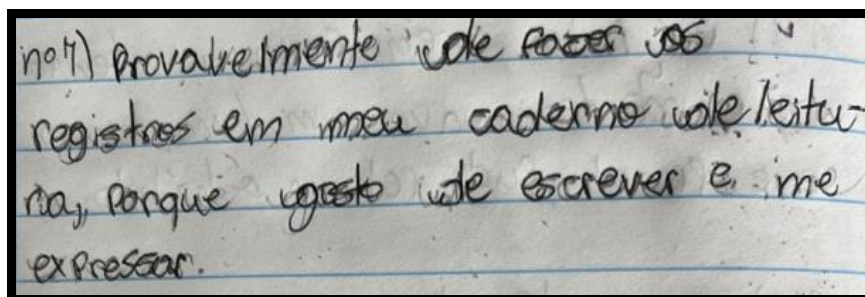 nº 7) Provavelmente de fazer os
registros em meu caderno de leitu-
ra, porque gosto de escrever e me
expressar.